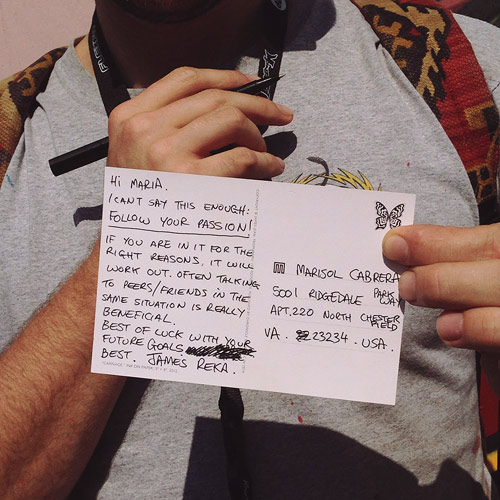 HI MARIA.
I CANT SAY THIS ENOUGH:
FOLLOW YOUR PASSION!
IF YOU ARE IN IT FOR THE
RIGHT REASONS, IT WILL
WORK OUT. OFTEN TALKING
TO PEERS/FRIENDS IN THE
SAME SITUATION IS REALLY
BENEFICIAL.
BEST OF LUCK WITH YOUR
FUTURE GOALS
BEST. JAMES REKA.
MARISOL CABRERA
5001 RIDGEDALE PARK
WAY
APT, 220 NORTH CHESTER
FIELD
VA. 23234. USA.